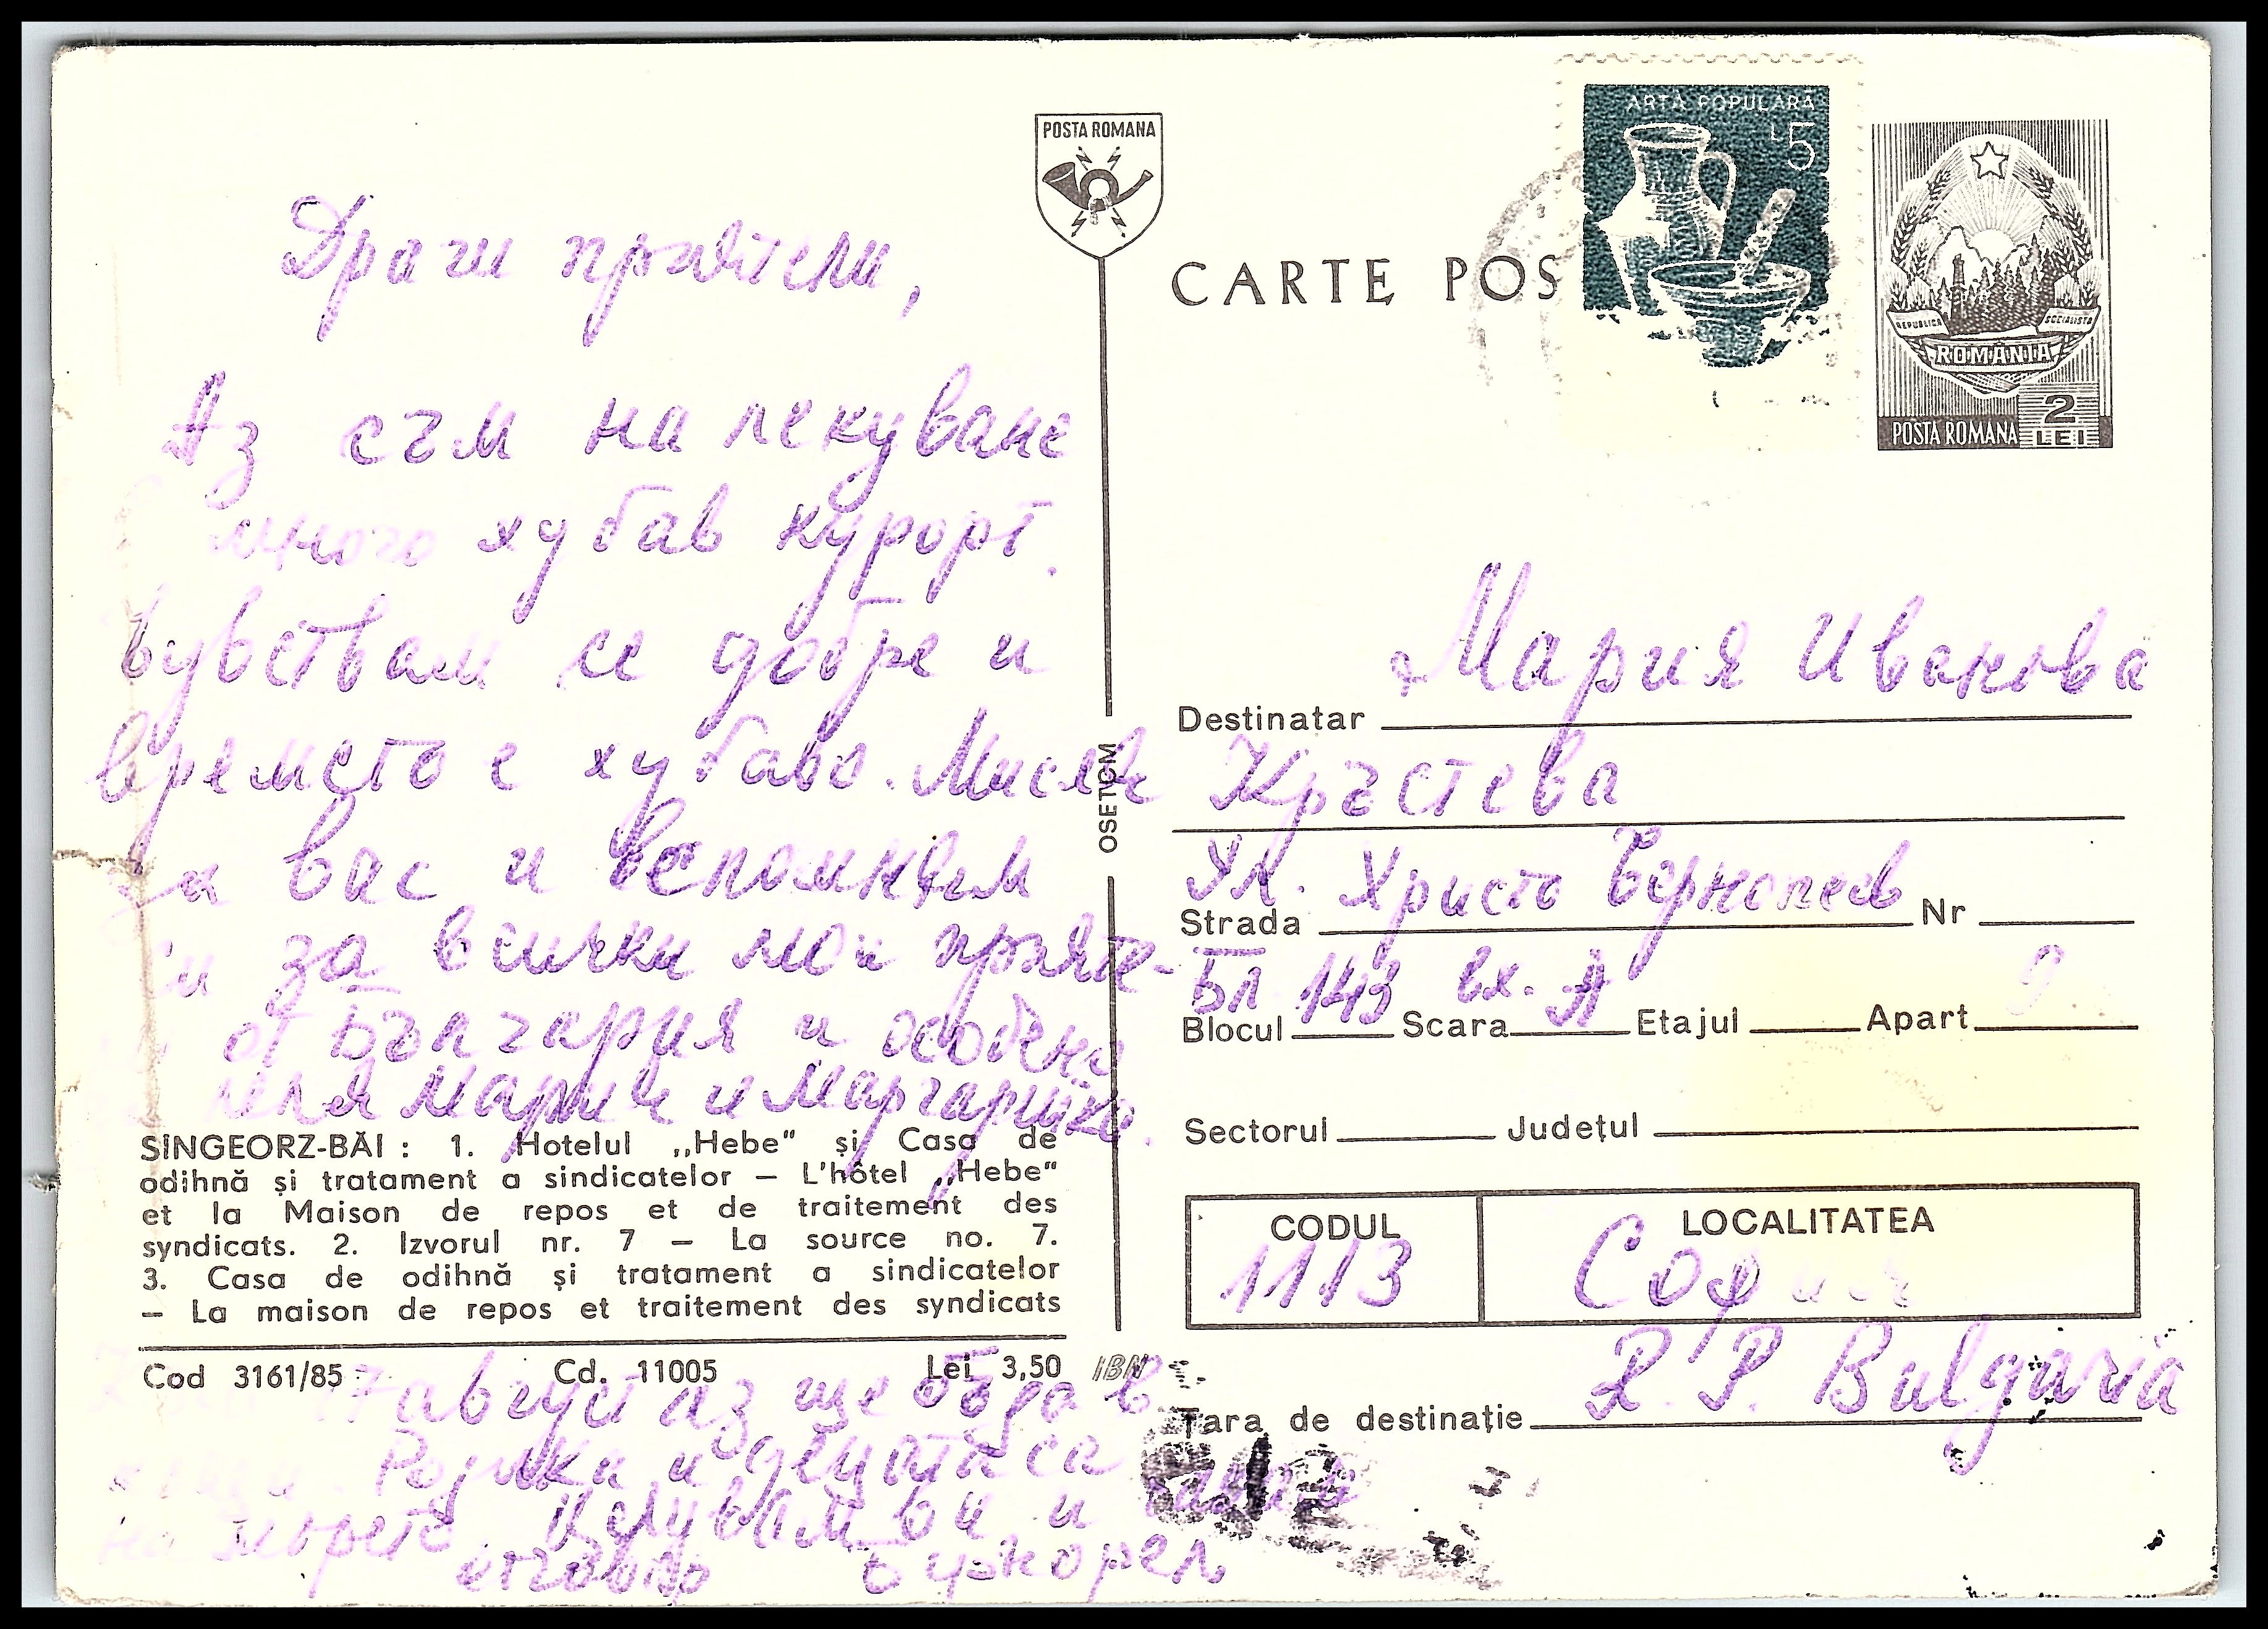 POSTA ROMANA
CARTE POS
ARTĂ POPULARĂ
5
REPUBLICA SOCIALISTA
ROMÂNIA
2
POSTA ROMANA LEI
Драги приятели,
Аз съм на лекуване
много хубав курорт.
Чувствам се добре и
времето е хубаво. Мисля
за вас и вспомням
и за всички мои прияте-
от България и особено
для Марии и Маргаритка.
SÎNGEORZ-BĂI : 1. Hotelul „Hebe“ și Casa de
odihnă și tratament a sindicatelor — L'hôtel „Hebe“
et la Maison de repos et de traitement des
syndicats. 2. Izvorul nr. 7 — La source no. 7.
3. Casa de odihnă și tratament a sindicatelor
— La maison de repos et traitement des syndicats
Cod 3161/85 Cd. 11005 Lei 3,50
17 август аз ще бъда в
Розика и децата са
на морето Целувам ви и
отговор Букорел
OSETCM
IBN
Destinatar Мария Иванова
Кръстева
Strada Ул. Христо Чернопеев Nr
Blocul Бл 143 Scara вх. А Etajul Apart 9
Sectorul Județul
CODUL LOCALITATEA
1113 София
Țara de destinație R. P. Bulgaria